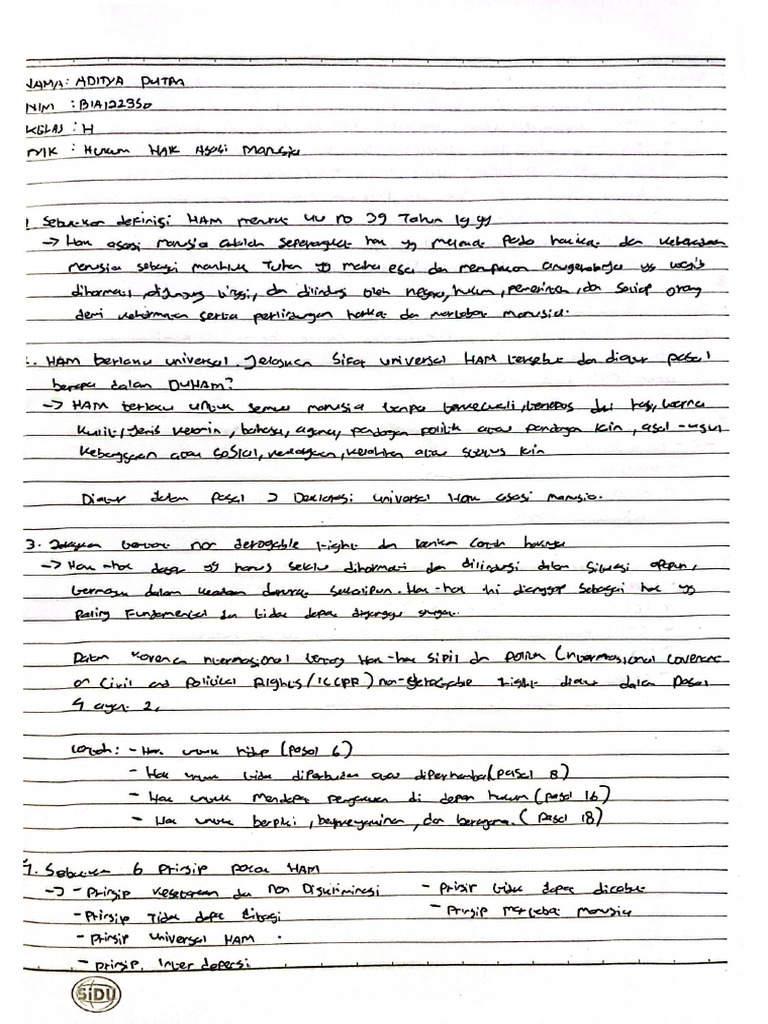 NAMA : ADITYA PUTRA
NIM : B1A122350
KELAS : H
MK : Hukum HAK Asasi Manusia
1. Sebutkan definisi HAM menurut UU no 39 Tahun 1999
-> Hak asasi manusia adalah seperangkat hak yg melekat pada hakikat dan keberadaan
manusia sebagai makhluk Tuhan yg maha esa dan merupakan anugerahnya yg wajib
dihormati, dijunjung tinggi, dan dilindungi oleh negara, hukum, pemerintah, dan setiap orang
demi kehormatan serta perlindungan harkat dan martabat manusia.
2. HAM berlaku universal. Jelaskan Sifat universal HAM tersebut dan diatur pasal
berapa dalam DUHAM?
-> HAM berlaku untuk semua manusia tanpa terkecuali, terlepas dari ras, warna
kulit, jenis kelamin, bahasa, agama, pandangan politik atau pandangan lain, asal-usul
kebangsaan atau sosial, kekayaan, kelahiran atau status lain
Diatur dalam Pasal 2 Deklarasi universal Hak asasi manusia.
3. Jelaskan tentang non derogable right dan berikan contoh haknya
-> Hak-hak dasar yg harus selalu dihormati dan dilindungi dalam situasi apapun,
termasuk dalam keadaan darurat sekalipun. Hak-hak ini dianggap sebagai hak yg
paling Fundamental dan tidak dapat diganggu gugat.
Dalam Kovenan Internasional tentang Hak-hak Sipil dan Politik (International Covenant
on Civil and Political Rights/ICCPR) non-derogable right diatur dalam Pasal
4 ayat 2.
Contoh : - Hak untuk hidup (pasal 6)
- Hak untuk tidak diperbudak atau diperhamba (pasal 8)
- Hak untuk mendapat pengakuan di depan hukum (pasal 16)
- Hak untuk berpikir, berkeyakinan, dan beragama. (pasal 18)
4. Sebutkan 6 Prinsip pokok HAM
-> - Prinsip Kesetaraan dan Non Diskriminasi - Prinsip tidak dapat dicabut
- Prinsip Tidak dapat dibagi - Prinsip Martabat manusia
- Prinsip universal HAM
- Prinsip. Inter depensi
SiDU